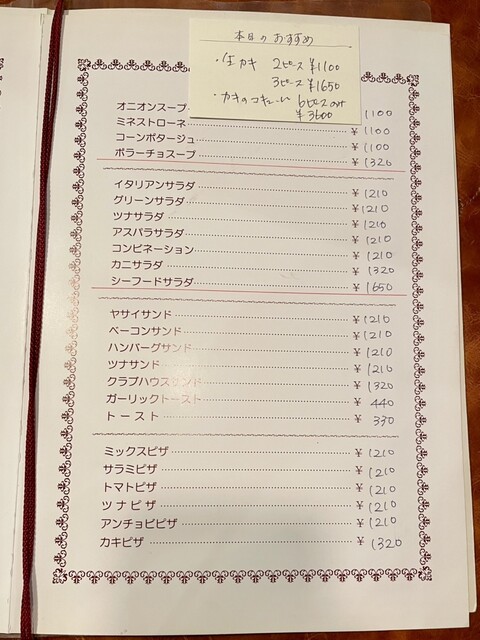 本日のおすすめ
・生カキ 2ピース ¥1100
3ピース ¥1650
・カキのコキール 6ピース
¥3600
オニオンスープ 1100
ミネストローネ ¥1100
コーンポタージュ ¥1100
ボラーチョスープ ¥1320
イタリアンサラダ ¥1210
グリーンサラダ ¥1210
ツナサラダ ¥1210
アスパラサラダ ¥1210
コンビネーション ¥1210
カニサラダ ¥1320
シーフードサラダ ¥1650
ヤサイサンド ¥1210
ベーコンサンド ¥1210
ハンバーグサンド ¥1210
ツナサンド ¥1210
クラブハウスサンド ¥1320
ガーリックトースト ¥440
トースト ¥330
ミックスピザ ¥1210
サラミピザ ¥1210
トマトピザ ¥1210
ツナピザ ¥1210
アンチョビピザ ¥1210
カキピザ ¥1320